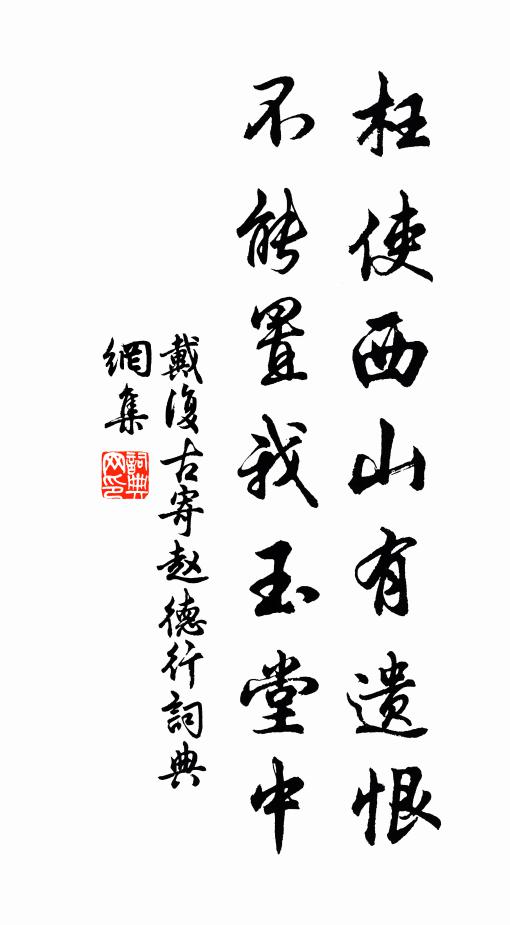 枉使西山有遗恨
不能置我玉堂中
戴復古寄赵德行詞典
網集
詞典
网印